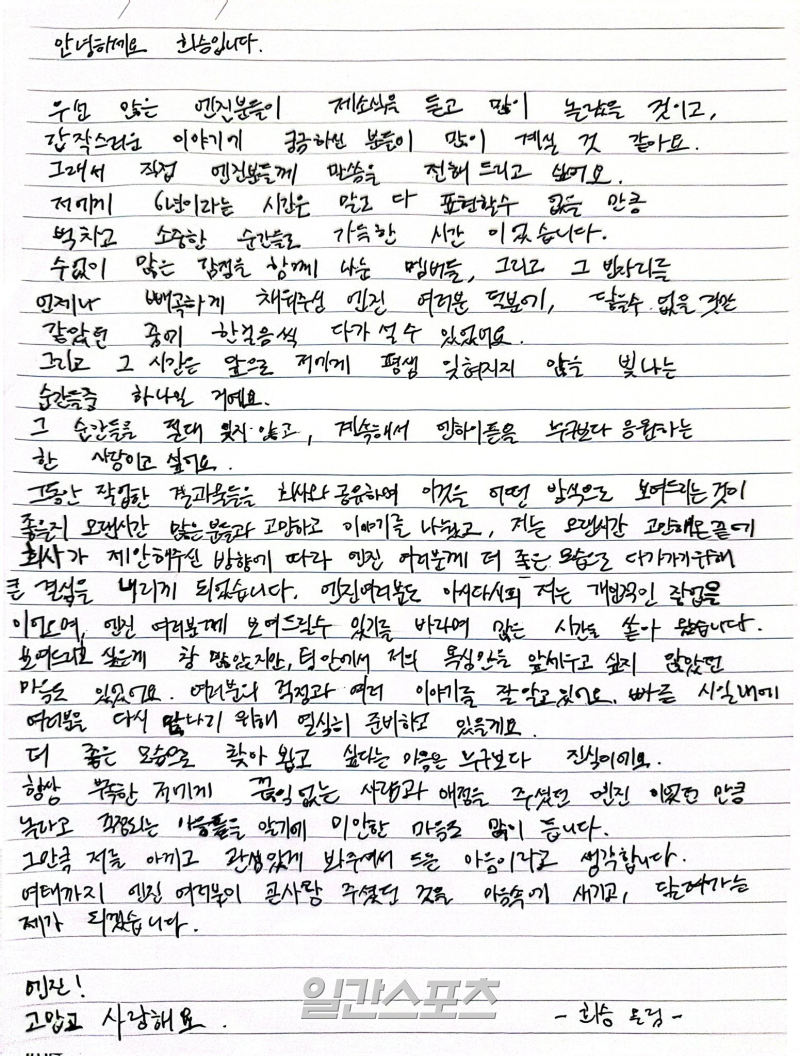 안녕하세요 희승입니다.
우선 많은 엔진분들이 제소식을 듣고 많이 놀랐을 것이고,
갑작스러운 이야기에 궁금하신 분들이 많이 계실 것 같아요.
그래서 직접 엔진분들께 말씀을 전해 드리고 싶어요.
저에게 6년이라는 시간은 말로 다 표현할수 없을 만큼
벅차고 소중한 순간들로 가득한 시간 이었습니다.
수없이 많은 감정을 함께 나눈 멤버들, 그리고 그 빈자리를
언제나 빼곡하게 채워주신 엔진 여러분 덕분에, 닿을수 없을 것만
같았던 꿈에 한걸음씩 다가 설 수 있었어요.
그리고 그 시간은 앞으로 저에게 평생 잊혀지지 않을 빛나는
순간들중 하나일 거예요.
그 순간들을 절대 잊지 않고, 계속해서 엔하이픈을 누구보다 응원하는
한 사람이고 싶어요.
그동안 작업한 결과물들을 회사와 공유하며 이것을 어떤 방식으로 보여드리는것이
좋을지 오랜시간 많은분들과 고민하고 이야기를 나눴고, 저는 오랜시간 고민해온끝에
회사가 제안해주신 방향에 따라 엔진 여러분께 더 좋은 모습으로 다가가기위해
큰 결심을 내리게 되었습니다. 엔진여러분도 아시다시피 저는 개인적인 작업을
이어오며, 엔진 여러분께 보여드릴수 있기를 바라며 많은 시간을 쏟아 왔습니다.
보여드리고 싶은게 참 많았지만, 팀안에서 저의 욕심만을 앞세우고 싶지 않았던
마음도 있었어요. 여러분의 걱정과 여러 이야기를 잘 알고있어요. 빠른 시일내에
여러분을 다시 만나기 위해 열심히 준비하고 있을게요.
더 좋은 모습으로 찾아 뵙고 싶다는 마음은 누구보다 진심이에요.
항상 부족한 저에게 끊임없는 사랑과 애정을 주셨던 엔진 이었던 만큼
놀라고 걱정되는 마음들을 알기에 미안한 마음도 많이 듭니다.
그만큼 저를 아끼고 관심있게 봐주셔서 드는 마음이라고 생각합니다.
여태까지 엔진 여러분이 큰사랑 주셨던 것을 마음속에 새기고, 달려가는
제가 되겠습니다.
엔진!
고맙고 사랑해요.
- 희승 올림 -
일간스포츠